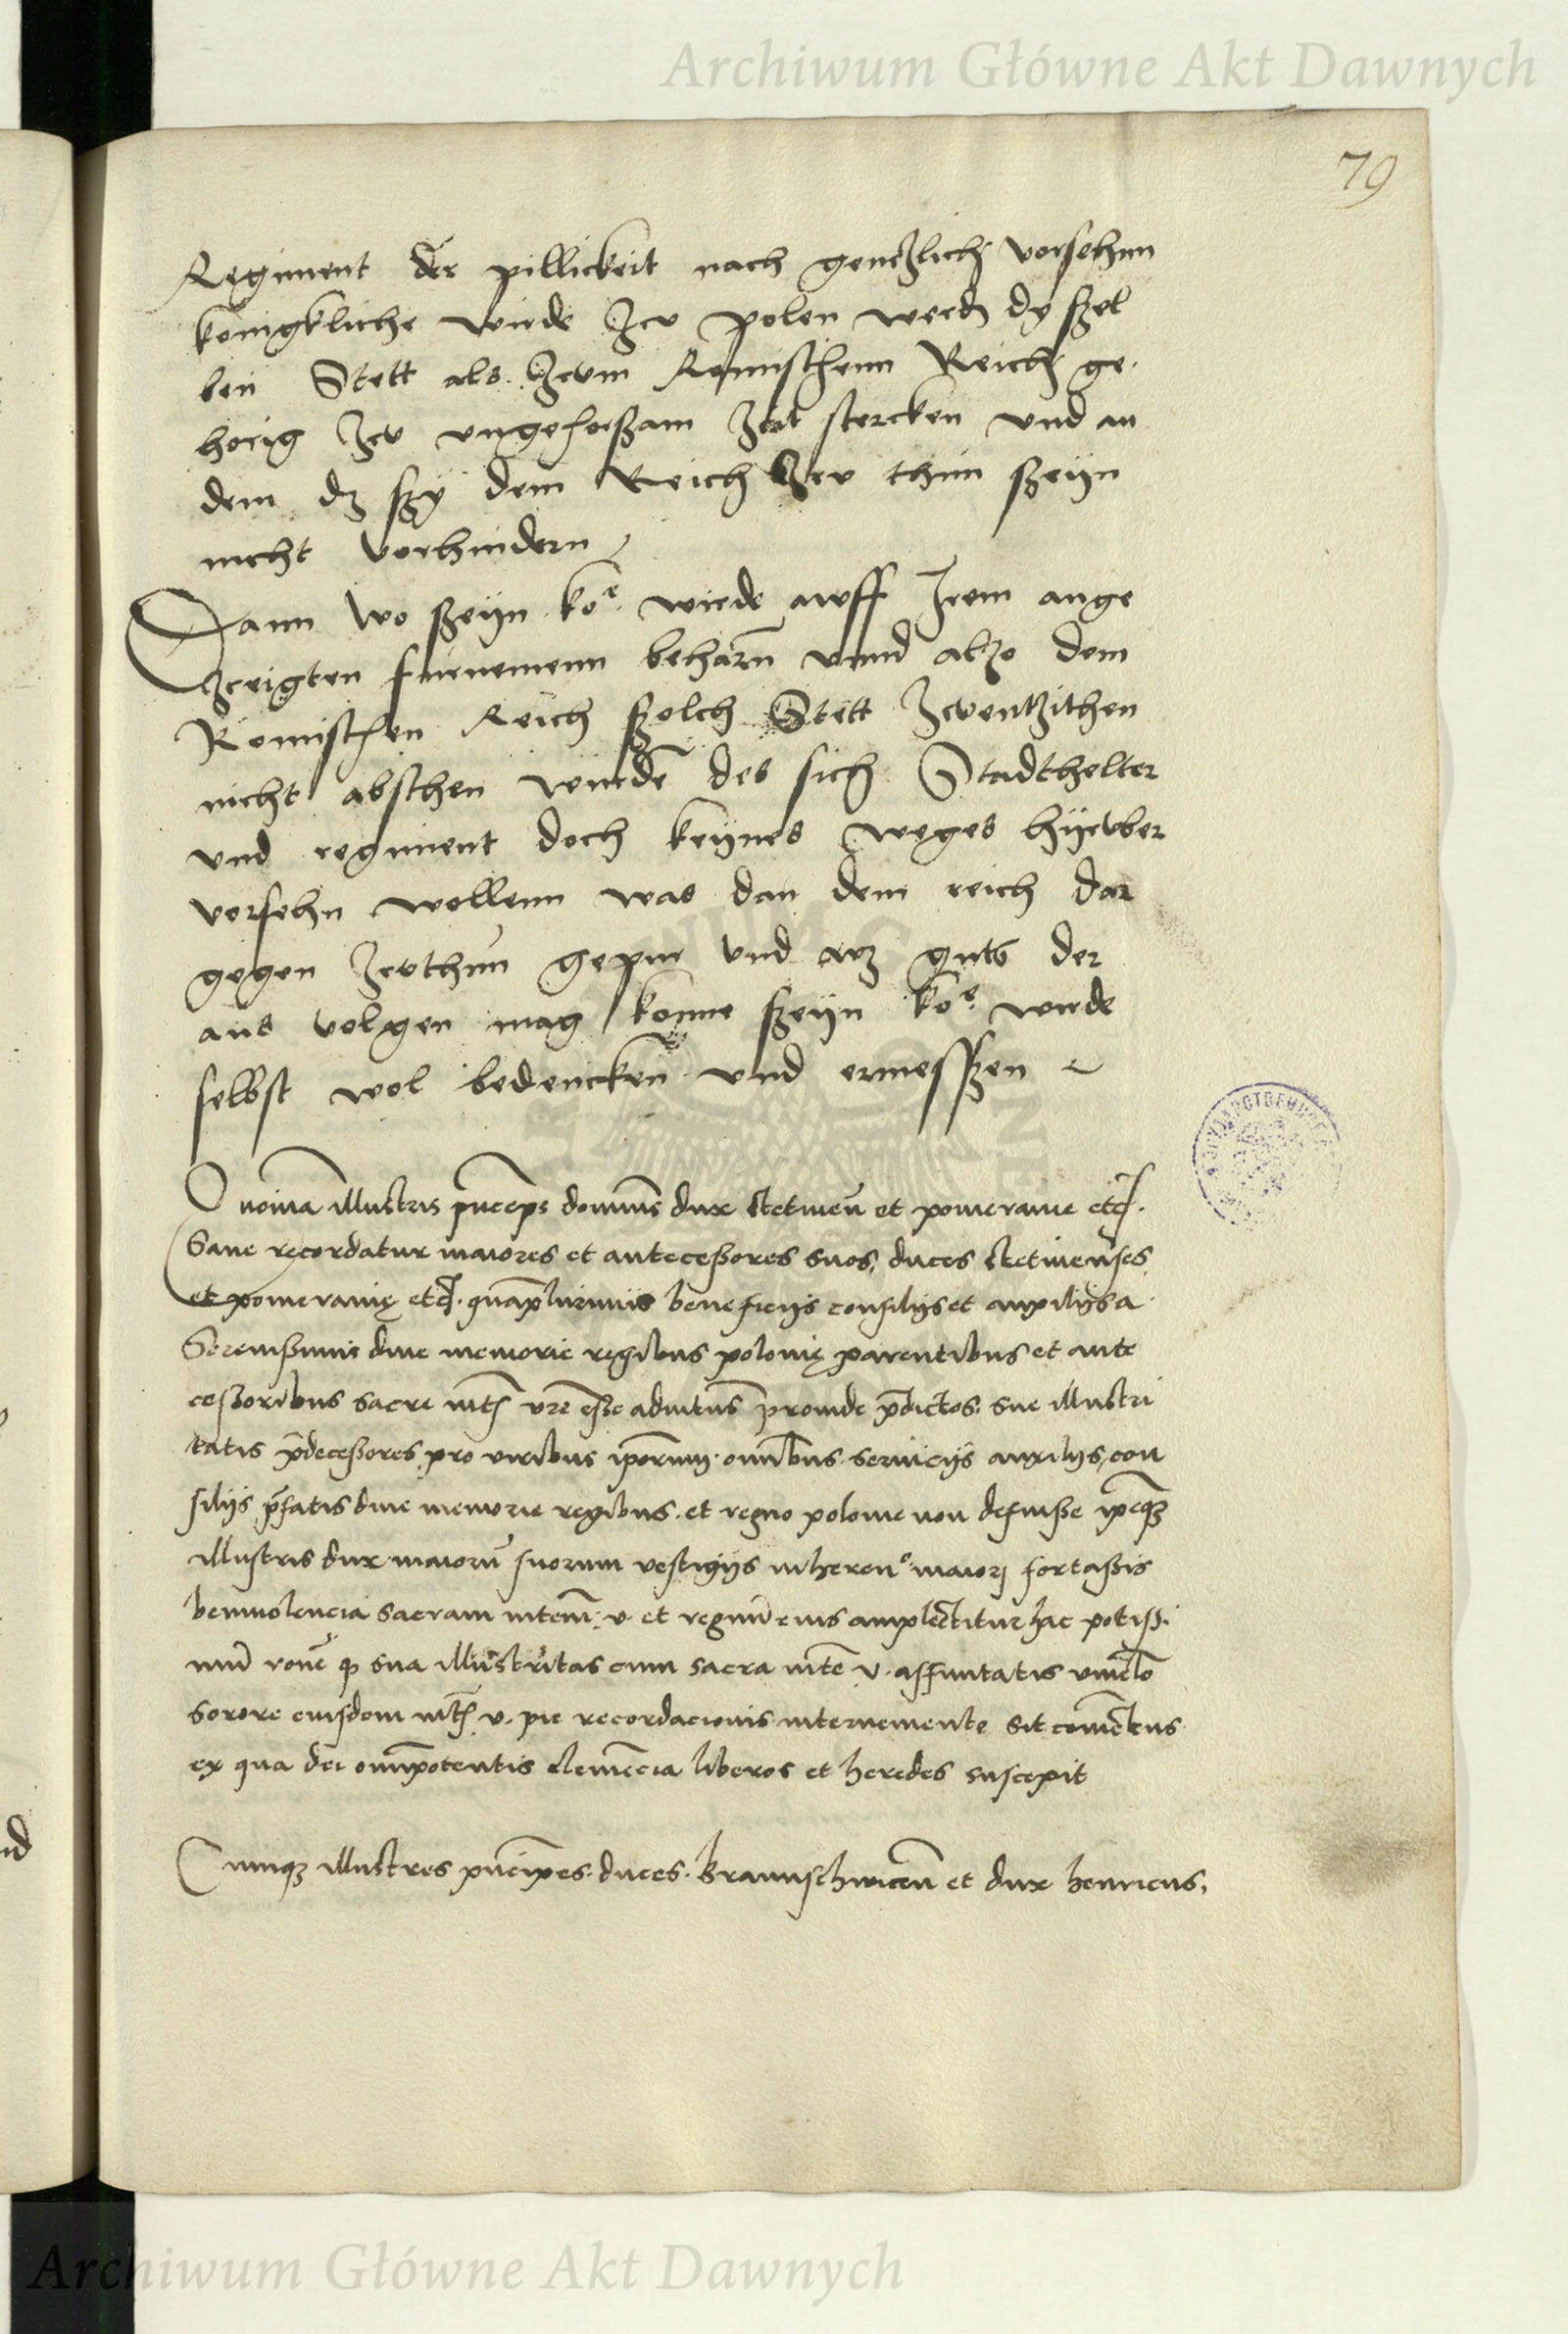 Archiwum Główne Akt Dawnych
79
Regiment der pillickeit nach genczlich vorsehnn
konigkliche wirde zcu polen werdn dy szel
ben Stett als zcum Romischenn Reich ge
horig zcu ungehorszam nit stercken und an
dem dz szy dem Reich zcu thun szeyn
nicht vorhindern
Dann wo szeyn ko.e wirde awff Irem ange
zceigten furnemenn beharn̄ unnd alzo dem
Romischen Reich szolch Stett zcuentzihen
nicht absthen wurden̄ des sich Stadthelter
vnd regiment doch keynes weges hyrvber
vorsehn wollenn was dan dem reich dar
gegen zcuthun gepur vnd wz guts der
aus volgen mag konne szeyn ko.e wirde
selbst wol bedencken̄ vnd ermesszen
Quoniā illustris p̄nceps dominus dux Stetineñ et pomeranie etc.
Sane recordatur maiores et antecessores suos, duces Stetinenses
et pomeranię etc. quāplurimis beneficijs consilijs et auxilijs a
Serenissimis dive memorie regibus polonię parentibus et ante
cessoribus sacre mtis vr̄e esse adiutus proinde p̄dictos sue illustri
tatis p̄decessores pro viribus ip̄orum omībus servicijs auxilijs, con
silijs p̄fatis dive memorie regibus et regno polonie non defuisse ip̄eq3
illustris dux maiorū suorum vestigijs inherens maiori fortassis
benivolencia sacram mtem v. et regnū eius amplectitur hac potissi
mū rōne q sua illustritas cum sacra mte v. affinitatis vinclo
sorore eiusdem mtis v. pie recordacionis interveniente sit coniūctus
ex qua dei omīpotentis clemēcia liberos et heredes suscepit
Cumq3 illustres p̄ncipes duces Braunschwiceñ et dux henricus,
Archiwum Główne Akt Dawnych